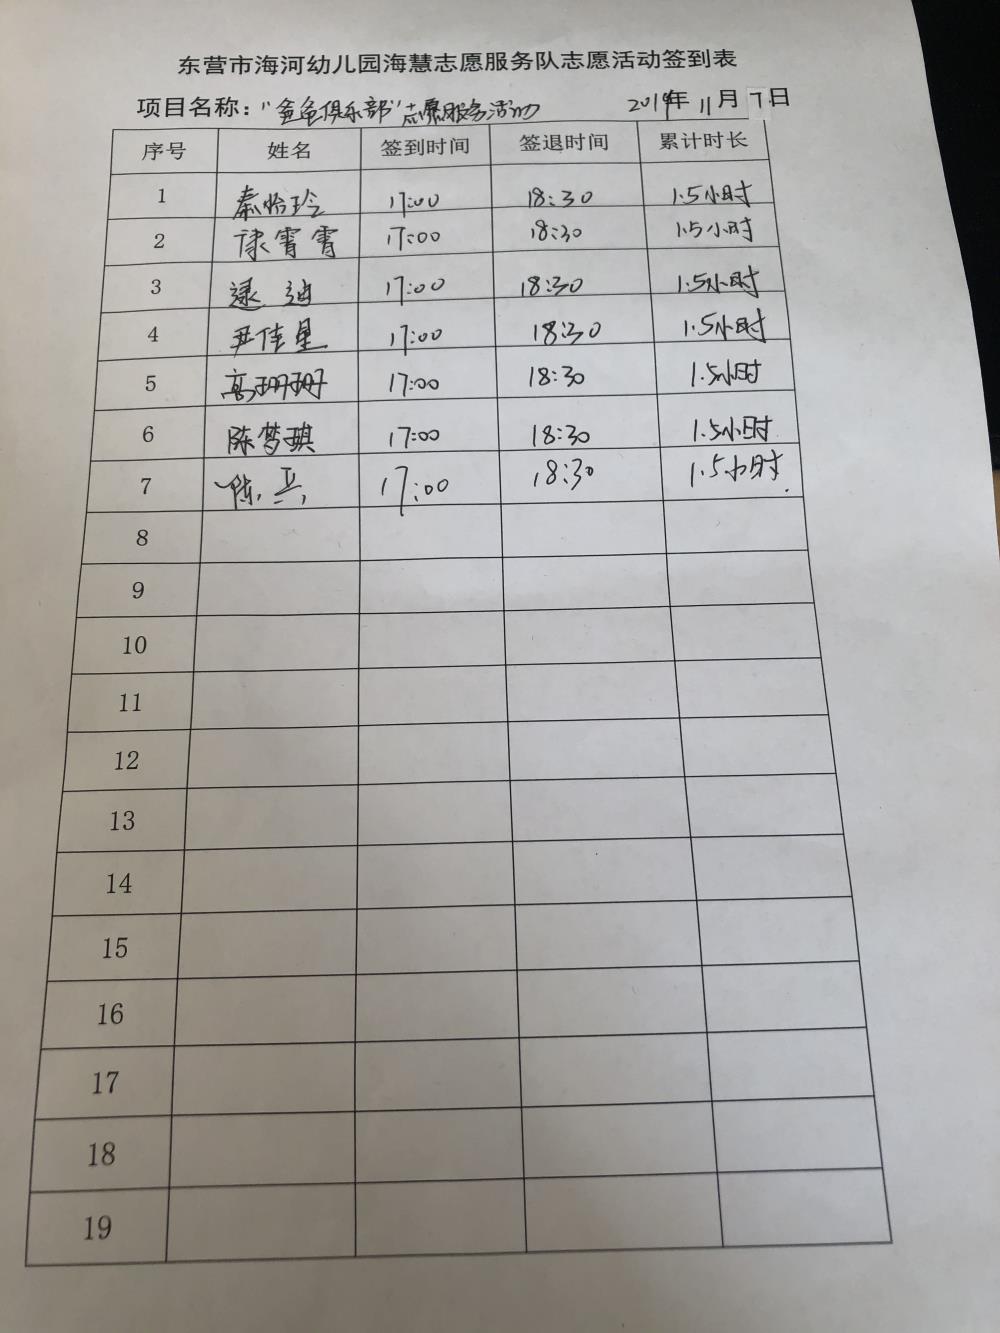 东营市海河幼儿园海慧志愿服务队志愿活动签到表
项目名称：“爸爸俱乐部”志愿服务活动 2019年 11月 7日
序号 姓名 签到时间 签退时间 累计时长
1 秦怡玲 17:00 18:30 1.5小时
2 霄霄 17:00 18:30 1.5小时
3 逯迪 17:00 18:30 1.5小时
4 尹佳星 17:00 18:30 1.5小时
5 高珊珊 17:00 18:30 1.5小时
6 陈梦琪 17:00 18:30 1.5小时
7 陈兵 17:00 18:30 1.5小时.
8
9
10
11
12
13
14
15
16
17
18
19